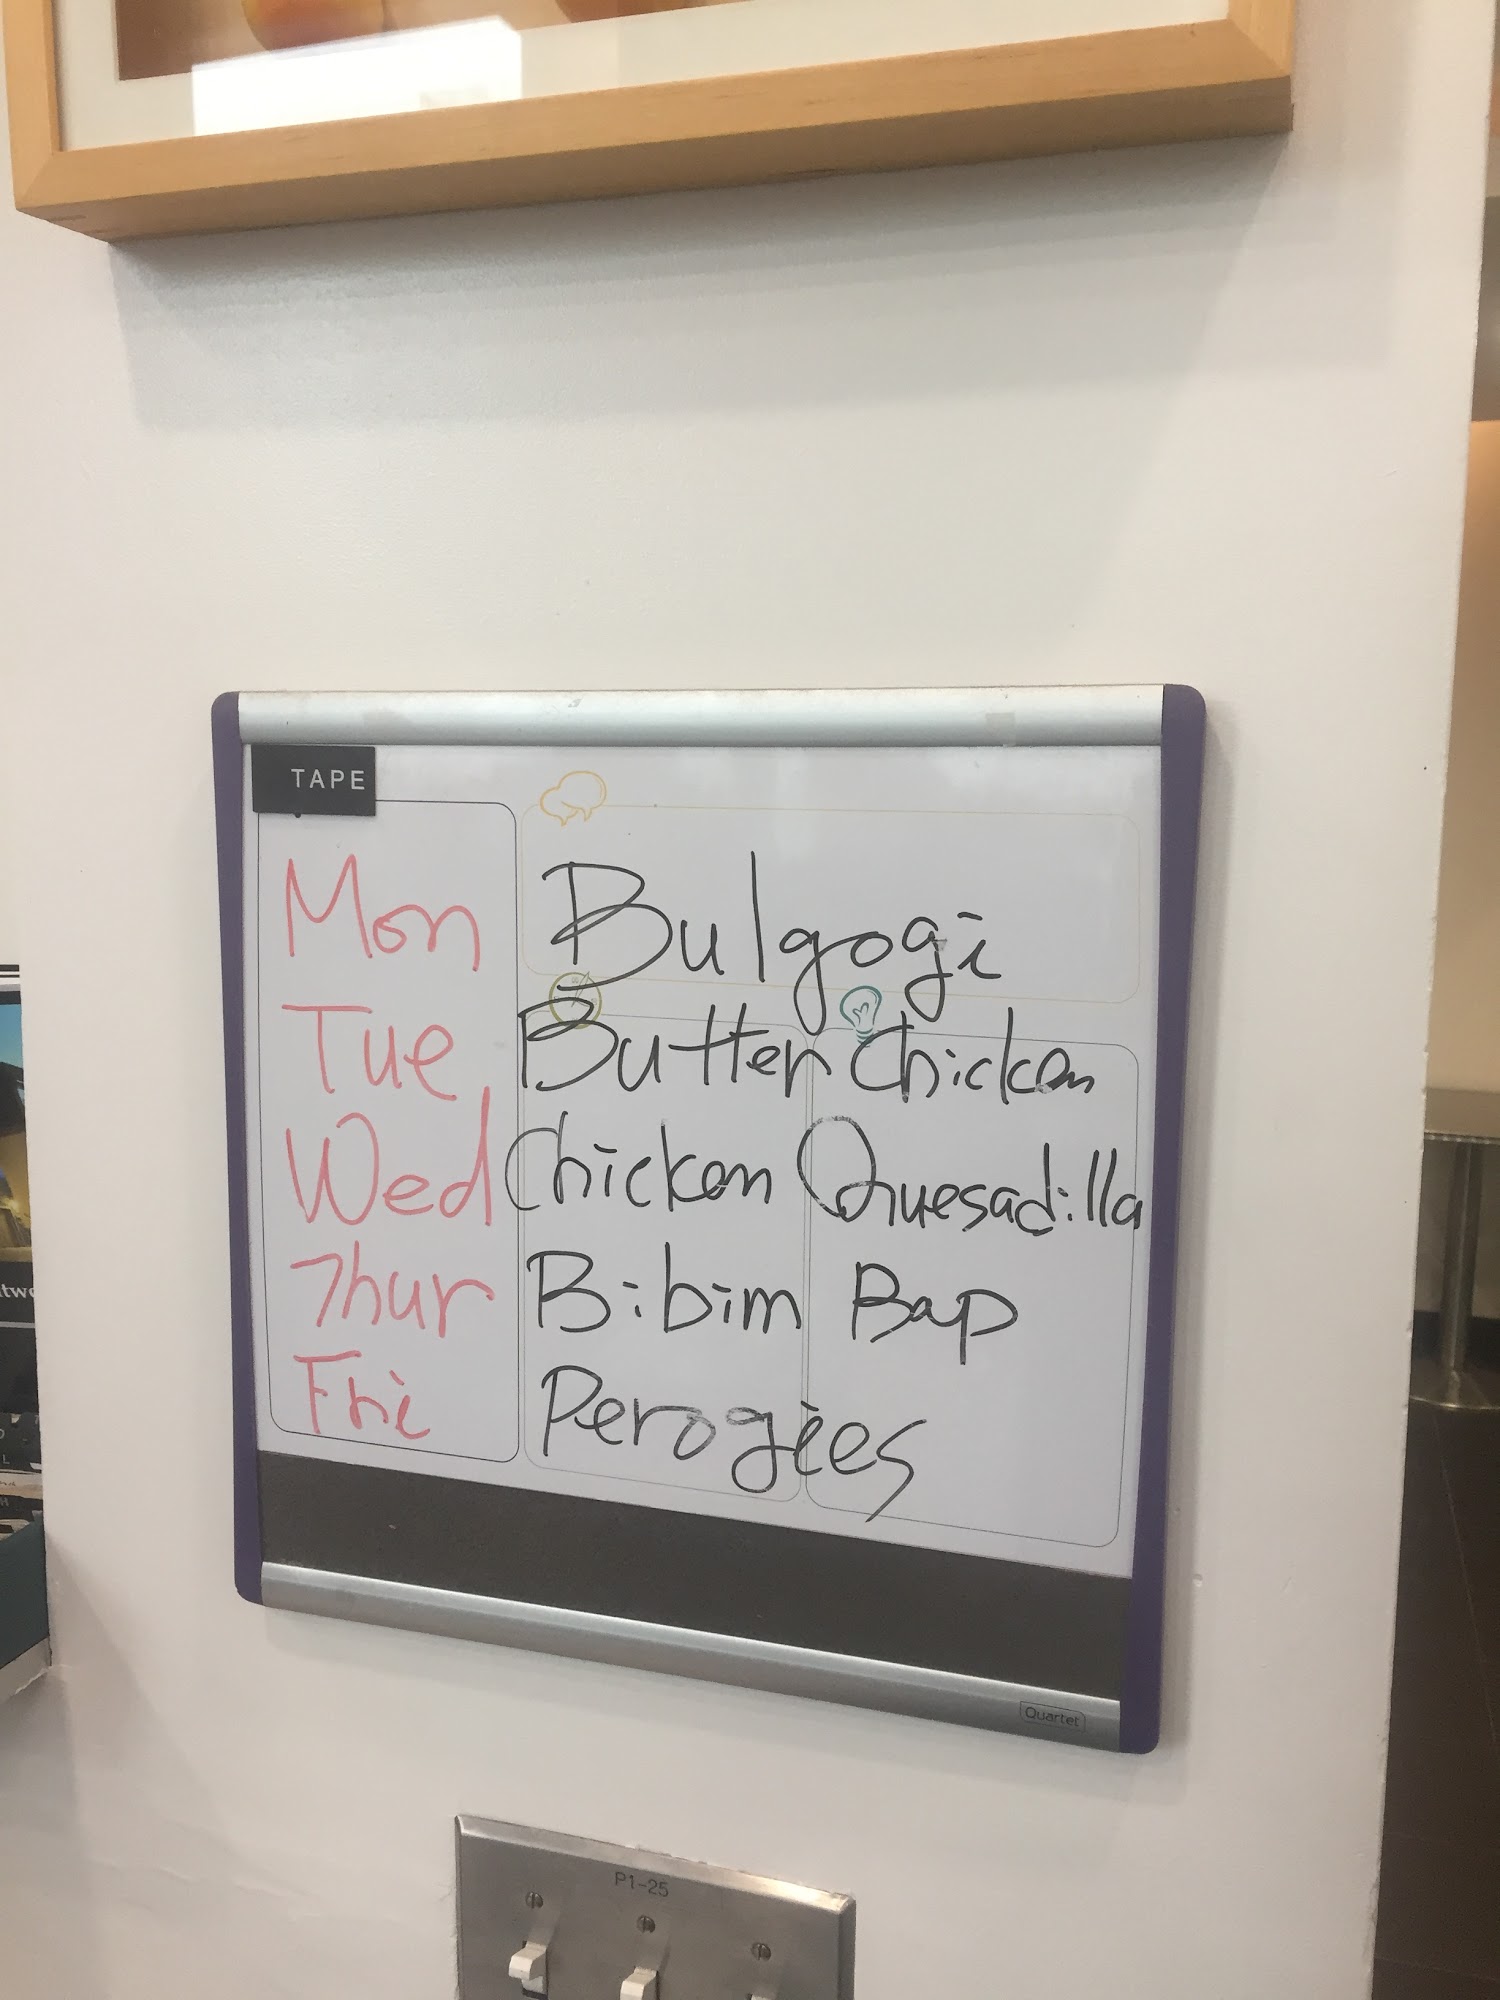 TAPE
Mon Bulgogi
Tue Butter Chicken
Wed Chicken Quesadilla
Thur Bibim Bap
Fri Perogies
Quartet
P1-25